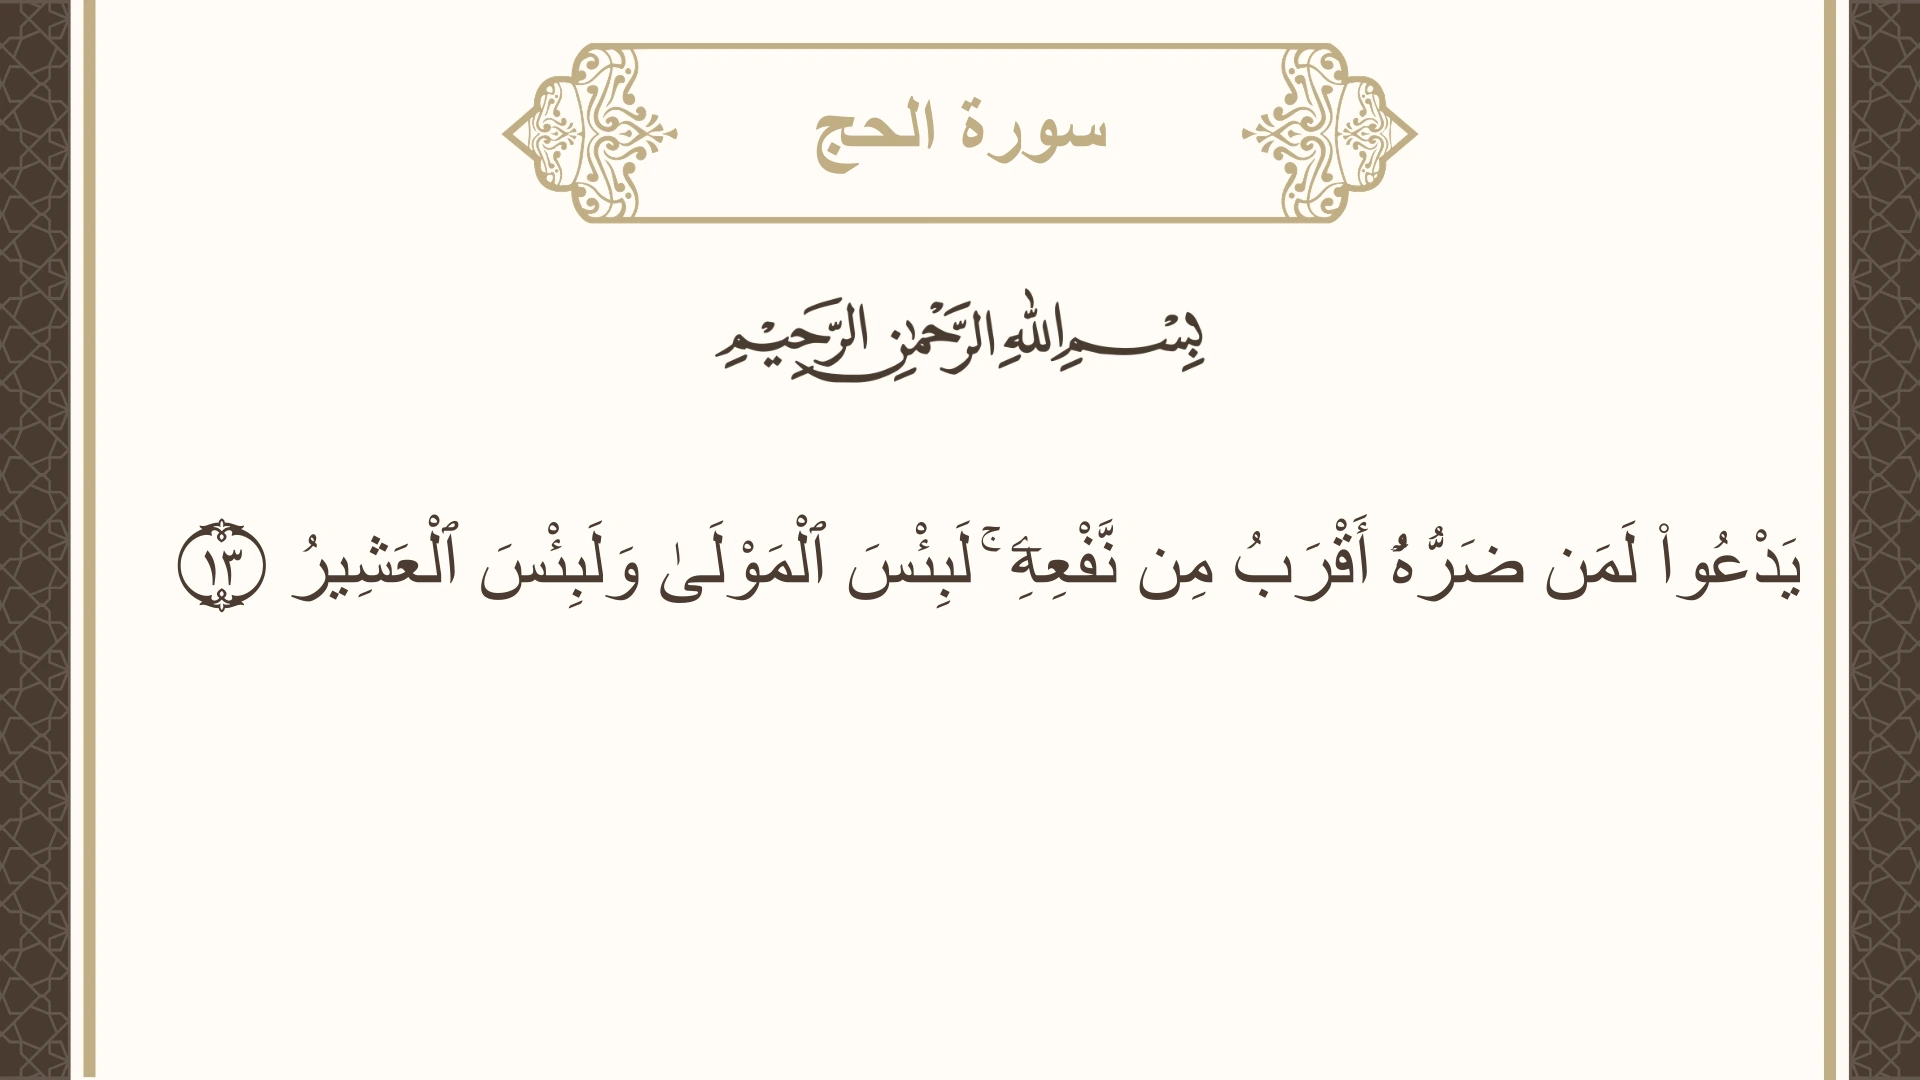 سورة الحج
بِسْمِ اللهِ الرَّحْمٰنِ الرَّحِيْمِ
يَدْعُوا۟ لَمَن ضَرُّهُۥٓ أَقْرَبُ مِن نَّفْعِهِۦ ۚ لَبِئْسَ ٱلْمَوْلَىٰ وَلَبِئْسَ ٱلْعَشِيرُ ١٣